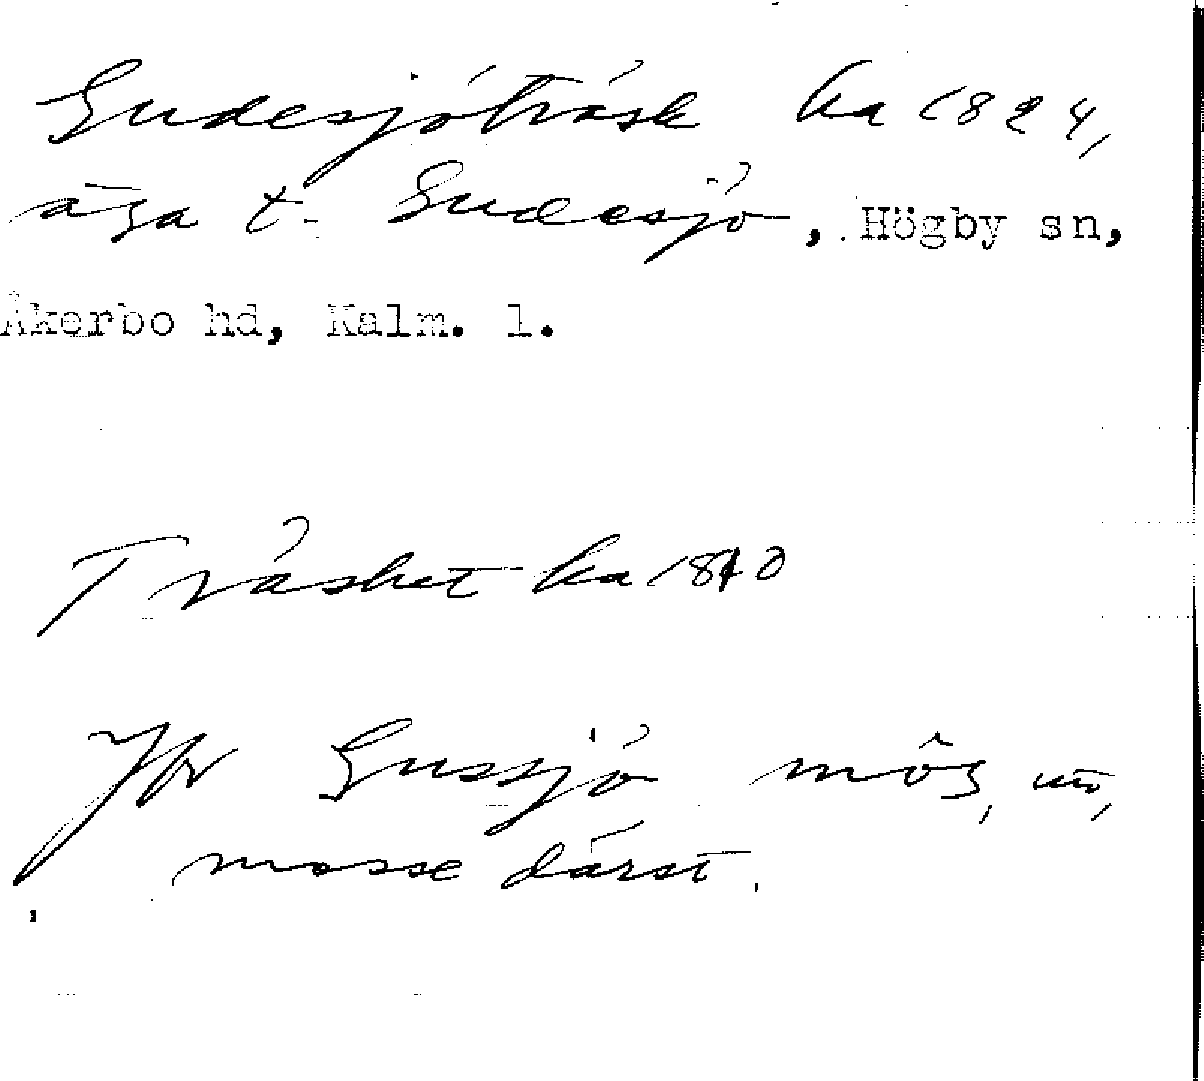 Gudesjöträsk ka 1824,
äga t. Gudesjö, Högby sn,
Åkerbo hd, Kalm. l.
Träsket ka 1840
Jfr Gussjö môs,
mosse därst.